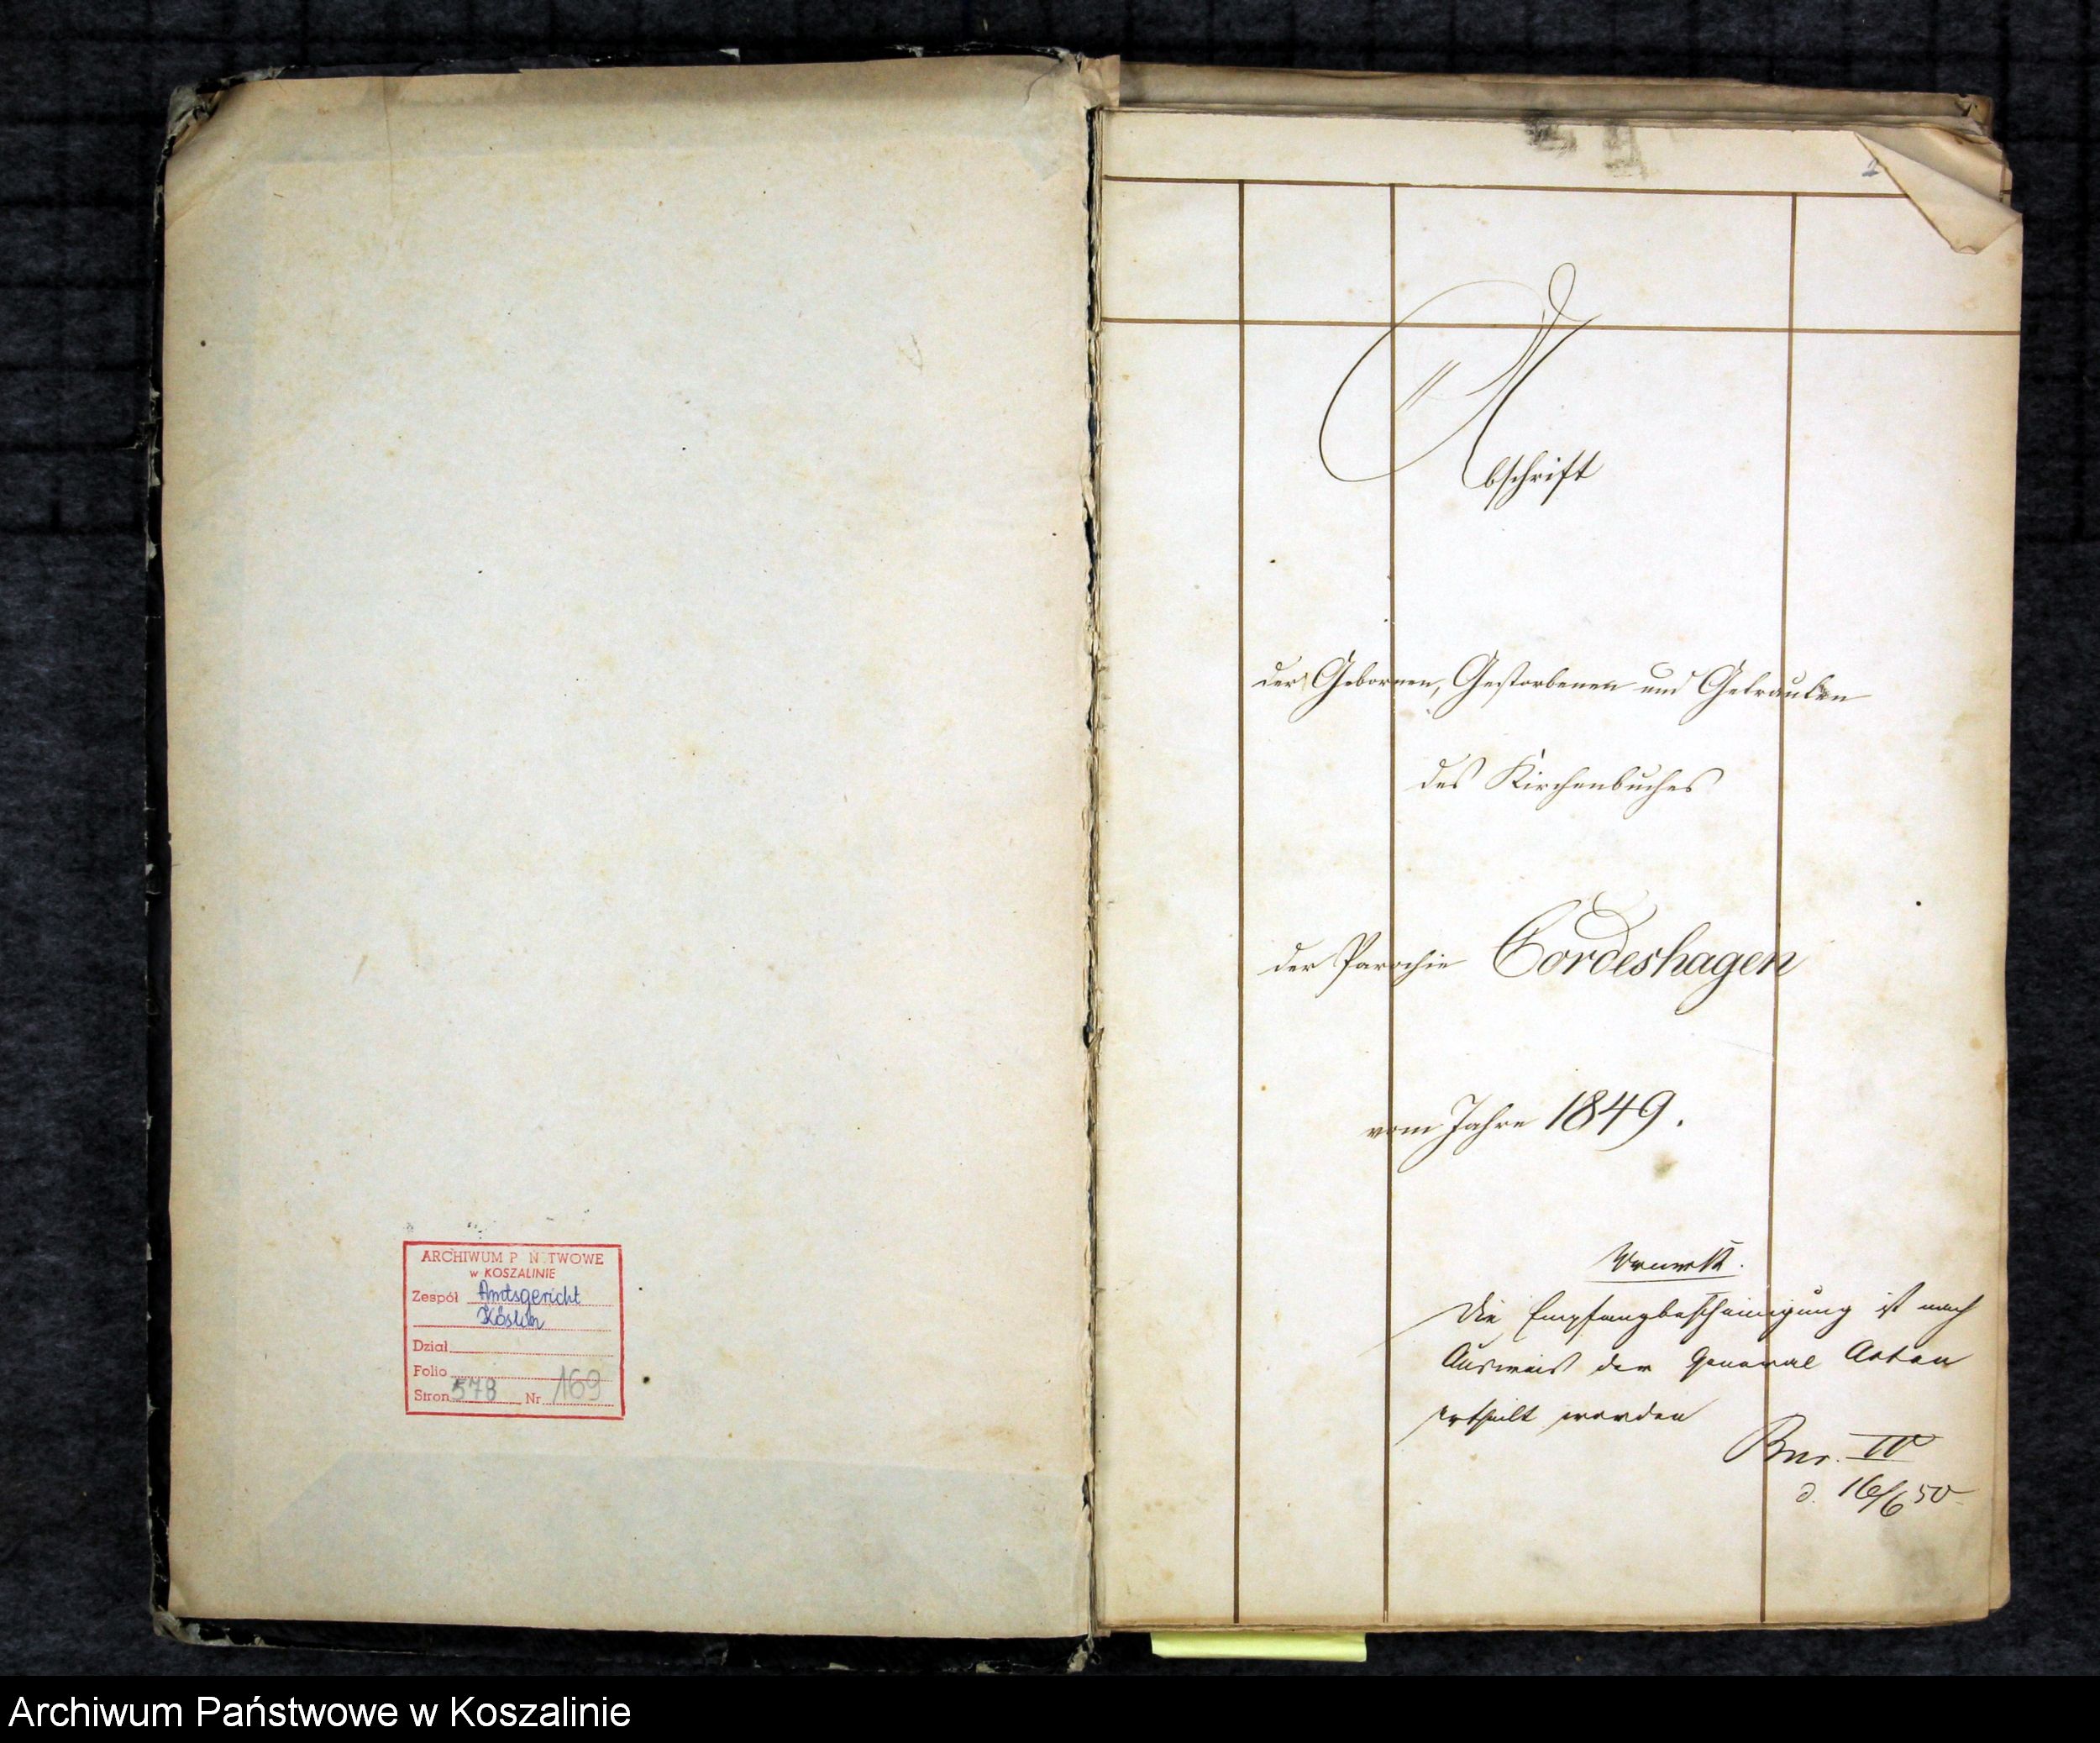 ARCHIWUM P N TWOWE
w KOSZALINIE
Zespół Amtsgericht
Köslin
Dział
Folio
Stron 578 Nr 169
2
Abschrift
der Gebornen, Gestorbenen und Getrauten
des Kirchenbuches
der Parochie Cordeshagen
vom Jahre 1849.
Die Empfangbescheinigung ist nach
Ausweis der General Acten
ertheilt worden
IV
d. 16/6 50
Archiwum Państwowe w Koszalinie